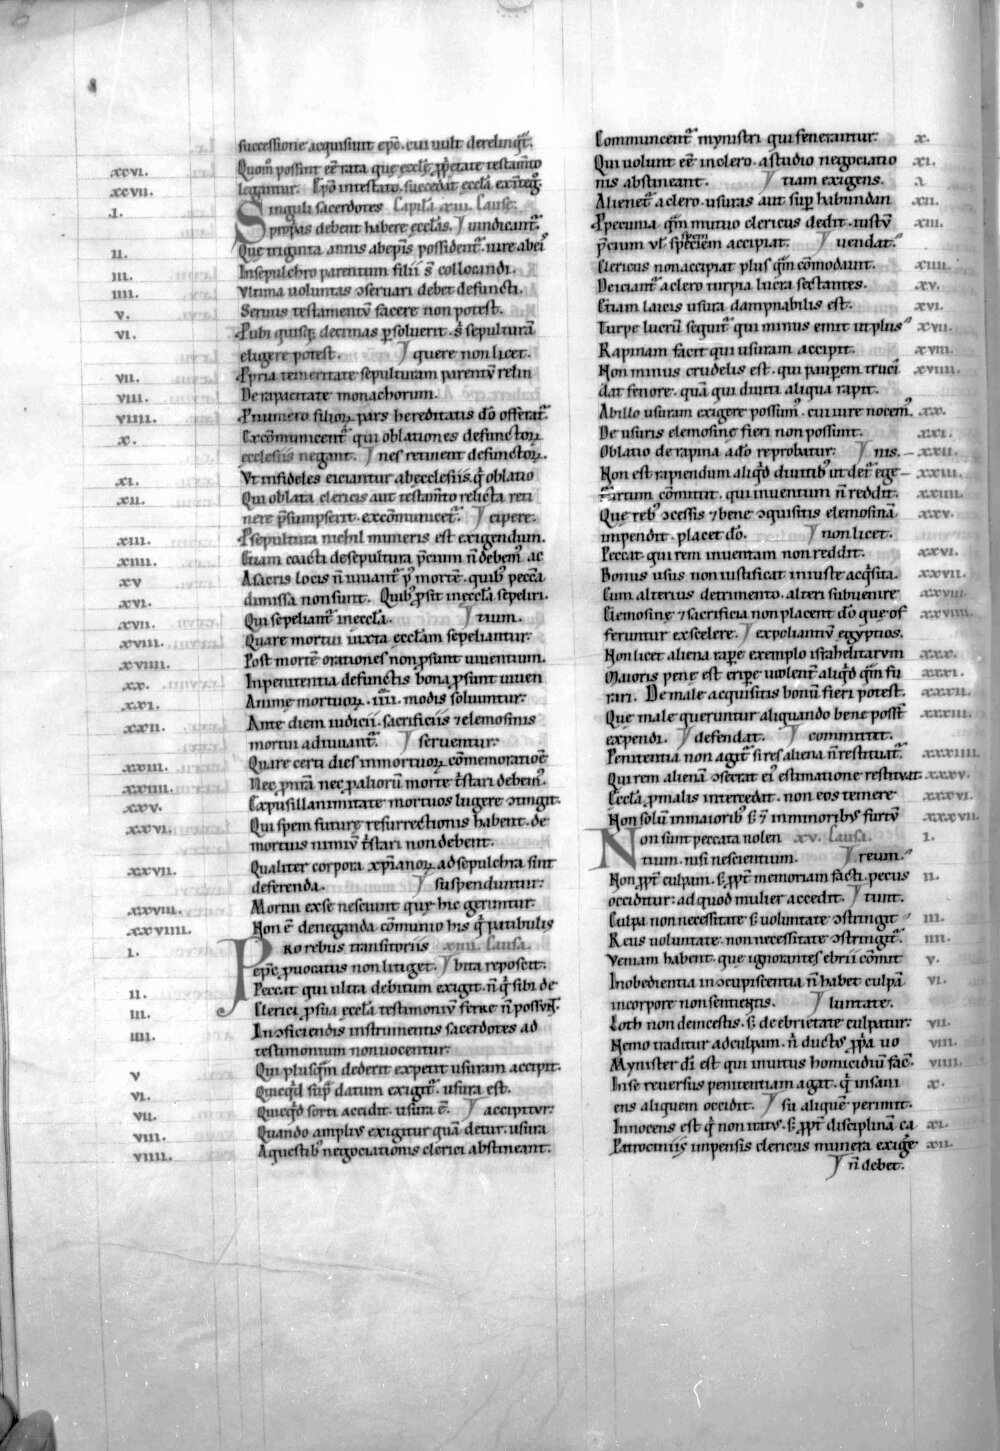 successione acquisiuit ep̄c. cui uult derelinq̄t.
xcvi. Quom̄ possint eē rata que eccl̄ę ꝓp̄etate testam̄to
xcvii. legantur. Ep̄o intestato. succedit eccl̄a
.i. Singuli sacerdotes Capĺa xiii. Cause.
ꝓp̄as debent habere eccl̄as. uindicant᷑.
ii. Que triginta annis ab ep̄is possident᷑. iure
iii. In sepulchro parentum filii s̄ collocandi.
iiii. Vltima uoluntas ɔseruari debet defuncti.
v. Seruus testamentū facere non potest.
vi. Vbi quisq; decimas ꝑsoluerit. sepulturā
eligere potest. quere non licet.
vii. Ꝓpria temeritate sepulturam parentū relin
viii. De rapacitate monachorum.
viiii. Ꝓ numero filioꝝ. pars hereditatis do offerat᷑.
x. Excōmunicent᷑ qui oblationes defunctoꝝ
ecclesiis negant. nes retinent defunctoꝝ.
xi. Vt infideles eiciantur ab ecclesiis. oblatio
xii. Qui oblata clericis aut testam̄to relicta reti
nere p̄sumpserit. excōmunicet᷑. cipere.
xiii. Ꝓ sepultura nichil muneris est exigendum.
xiiii. Etiam coacti de sepultura p̄cium n̄ debem᷒ ac
xv A sacris locis n̄ iuuant᷑ p᷒ mortē. quib᷒ pecc̄a
xvi. dimissa non sunt. Quib᷒ ꝓsit in eccl̄a sepeliri.
xvii. Qui sepeliant᷑ in eccl̄a. tium.
xviii. Quare mortui iuxta eccl̄am sepeliantur.
xviiii. Post mortē orationes non ꝓsunt uiuentium.
xx. In penitentia defunctis bona ꝓsunt uiuen
xxi. Anime mortuoꝝ .iiii. modis soluuntur.
xxii. Ante diem iudicii. sacrificiis ⁊ elemosinis
mortui adiuuant᷑. seruentur.
xxiii. Quare certi dies in mortuoꝝ cōmemoratiōē
xxiiii. Nec ꝓ nrā nec ꝓ alioꝝ morte t̄stari debem᷒.
xxv. Ex pusillanimitate mortuos lugere ɔtingit.
xxvi. Qui spem future resurrectionis habent. de
mortuis nimiū t̄stari non debent.
xxvii. Qualiter corpora xp̄ianoꝝ ad sepulchra sint
deferenda. suspenduntur.
xxviii. Mortui ex se nesciunt que hic geruntur.
xxviiii. Non ē deneganda cōmunio his q̄ patibulis
i. Pro rebus transitoriis xiiii. Causa.
ep̄c ꝓuocatus non litiget. bita reposcit.
ii. Peccat qui ultra debitum exigit. n̄ q̄ sibi de
iii. Clerici ꝓ sua eccl̄a testimoniū ferre n̄ possunt.
iiii. In ɔficiendis instrumentis sacerdotes ad
testimonium non uocentur.
v Qui plusq̄m dederit expetit usuram accipit.
vi. Quicq̄d sup̄ datum exigit᷑. usura est.
vii. Quicq̄d sorti accidit. usura ē. accipitur.
viii. Quando amplius exigitur quā detur. usura
viiii. A questib᷒ negociationis clerici abstineant.
Communicent᷑ mynistri qui fenerantur. x.
Qui uolunt eē in clero. a studio negociatio xi.
nis abstineant. tiam exigens.
Alienet᷑ a clero. usuras aut sup̄ habundan xii.
Pecunia q̄m mutuo clericus dedit. iustū xiii.
p̄cium ul̄ speciem accipiat. uendat.
Clericus non accipiat plus q̄m cōmodauit. xiiii.
Deiciant᷑ a clero turpia lucra sectantes. xv.
Etiam laicis usura dampnabilis est. xvi.
Turpe lucrū sequit᷑ qui minus emit ut plus xvii.
Rapinam facit qui usuram accipit. xviii.
Non minus crudelis est. qui pauperem truci xviiii.
dat fenore. quā qui diuiti aliqua rapit.
Ab illo usuram exigere possum᷒. cui iure nocem᷒. xx.
De usuris elemosine fieri non possunt. xxi.
Oblatio de rapina a do reprobatur. nis. xxii.
Non est rapiendum aliq̄d diuitib᷒ ut det᷑ ege xxiii.
Furtum cōmittit. qui inuentum n̄ reddit. xxiiii.
Que reb᷒ ɔcessis ⁊ bene ɔquisitis elemosinā xxv.
impendit. placet do. non licet.
Peccat qui rem inuentam non reddit. xxvi.
Bonus usus non iustificat iniuste acq̄sita. xxvii.
Cum alterius detrimento. alteri subuenire xxviii.
Elemosine ⁊ sacrificia non placent do que of xxviiii.
feruntur ex scelere. expoliantiū egyptios.
Non licet aliena rapere exemplo israhelitarum xxx.
Maioris pene est eripe uiolent᷑ aliq̄d q̄m fu xxxi.
rari. De male acquisitis bonū fieri potest. xxxii.
Que male queruntur aliquando bene poss̄t xxxiii.
expendi. defendat. committit.
Penitentia non agit᷑ si res aliena n̄ restituat᷑. xxxiiii.
Qui rem alienā ɔsecrat ei᷒ estimatione restituat. xxxv.
Eccl̄a ꝓ malis intercedit. non eos temere xxxvi.
Non solū in maioribꝰ s; ⁊ in minoribus furtū xxxvii.
Non sunt peccata nolen xv. Causa. i.
tium. nisi nescientium. reum.
Non ꝓpt̄ culpam. s; ꝓpt̄ memoriam facti. pecus ii.
occiditur. ad quod mulier accedit. tunt.
Culpa non necessitate s; uoluntate ɔstringit iii.
Reus uoluntate. non necessitate ɔstringit᷑. iiii.
Veniam habent. que ignorantes ebrii cōmit v.
Inobedientia in ɔcupiscentia n̄ habet culpā vi.
in corpore non sentientis. luntate.
Loth non de incestis. s; de ebrietate culpatur. vii.
Nemo traditur ad culpam. n̄ ductus ꝓp̄a uo viii.
Mynister di est qui inuitus homicidiū fac̄. viiii.
In se reuersus penitentiam agat. q̄ insani x.
ens aliquem occidit. sū aliquē perimit.
Innocens est q̄ non iratus. s; ꝓpt̄ disciplinā ca xi.
Patrociniis impensis clericus munera exige xii.
n̄ debet.